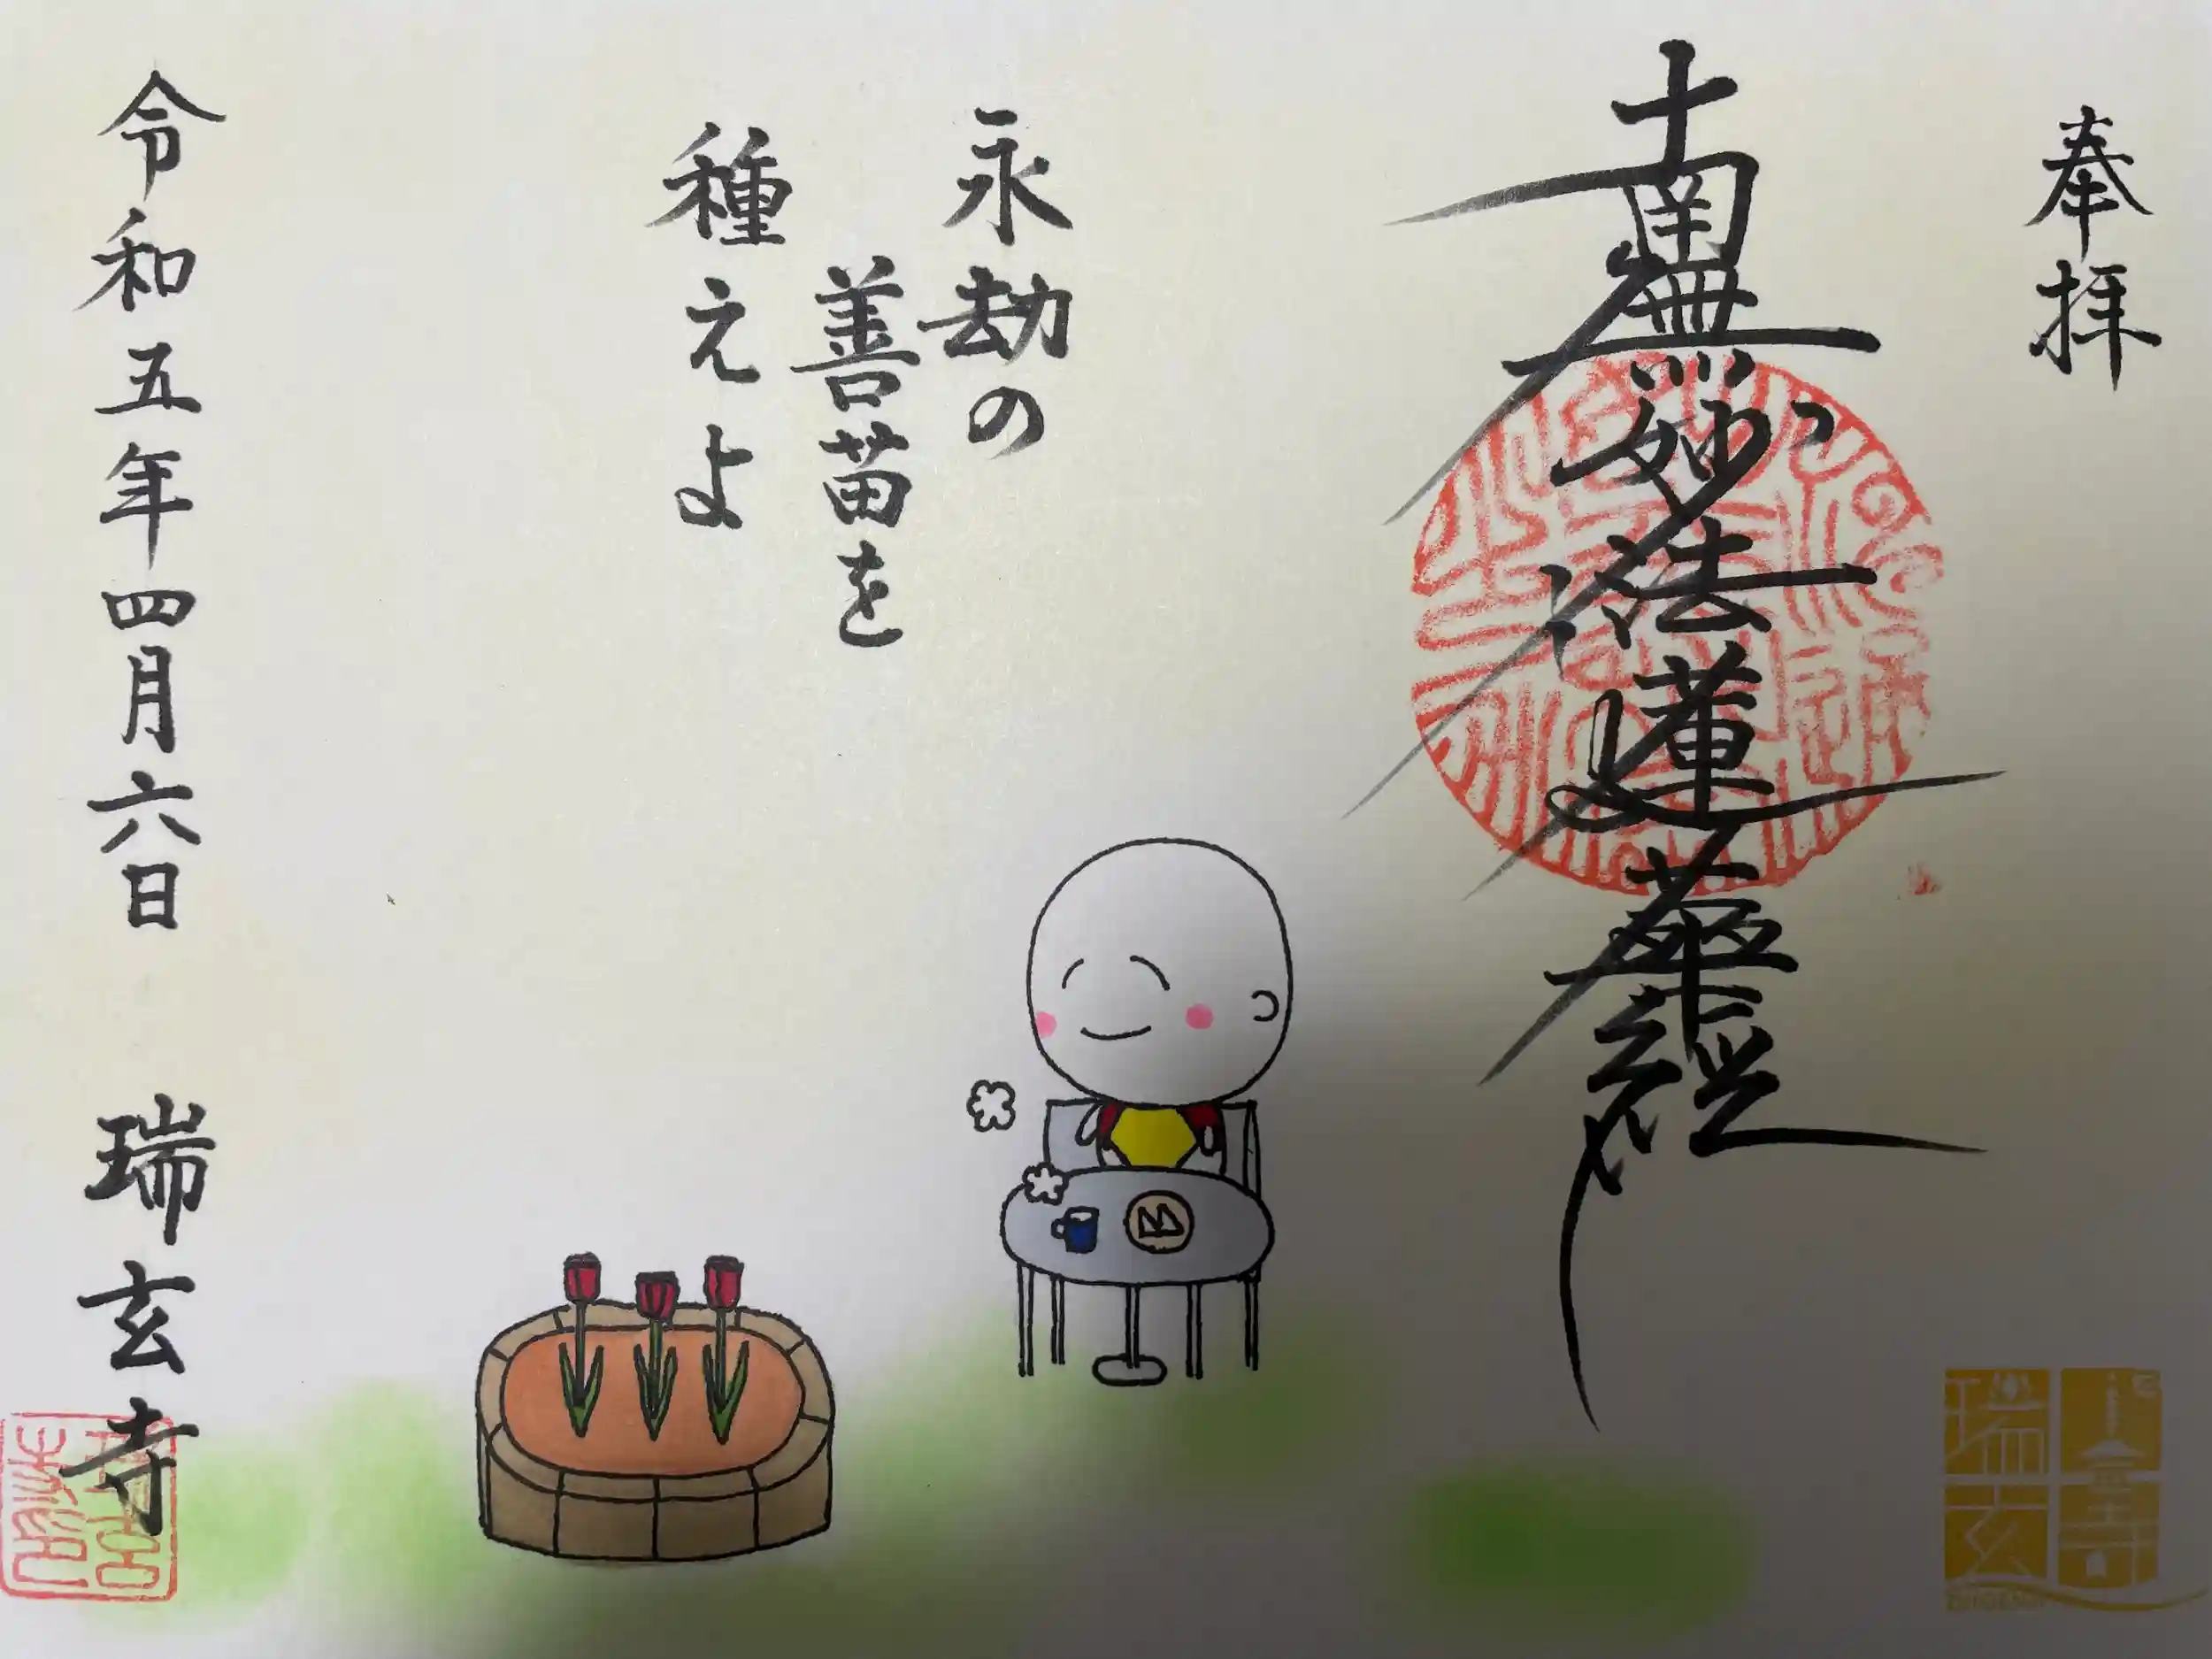 奉拝
南無妙法蓮華経
永劫の
善苗を
種えよ
令和五年四月六日 瑞玄寺
瑞玄寺
ZUIGENJI